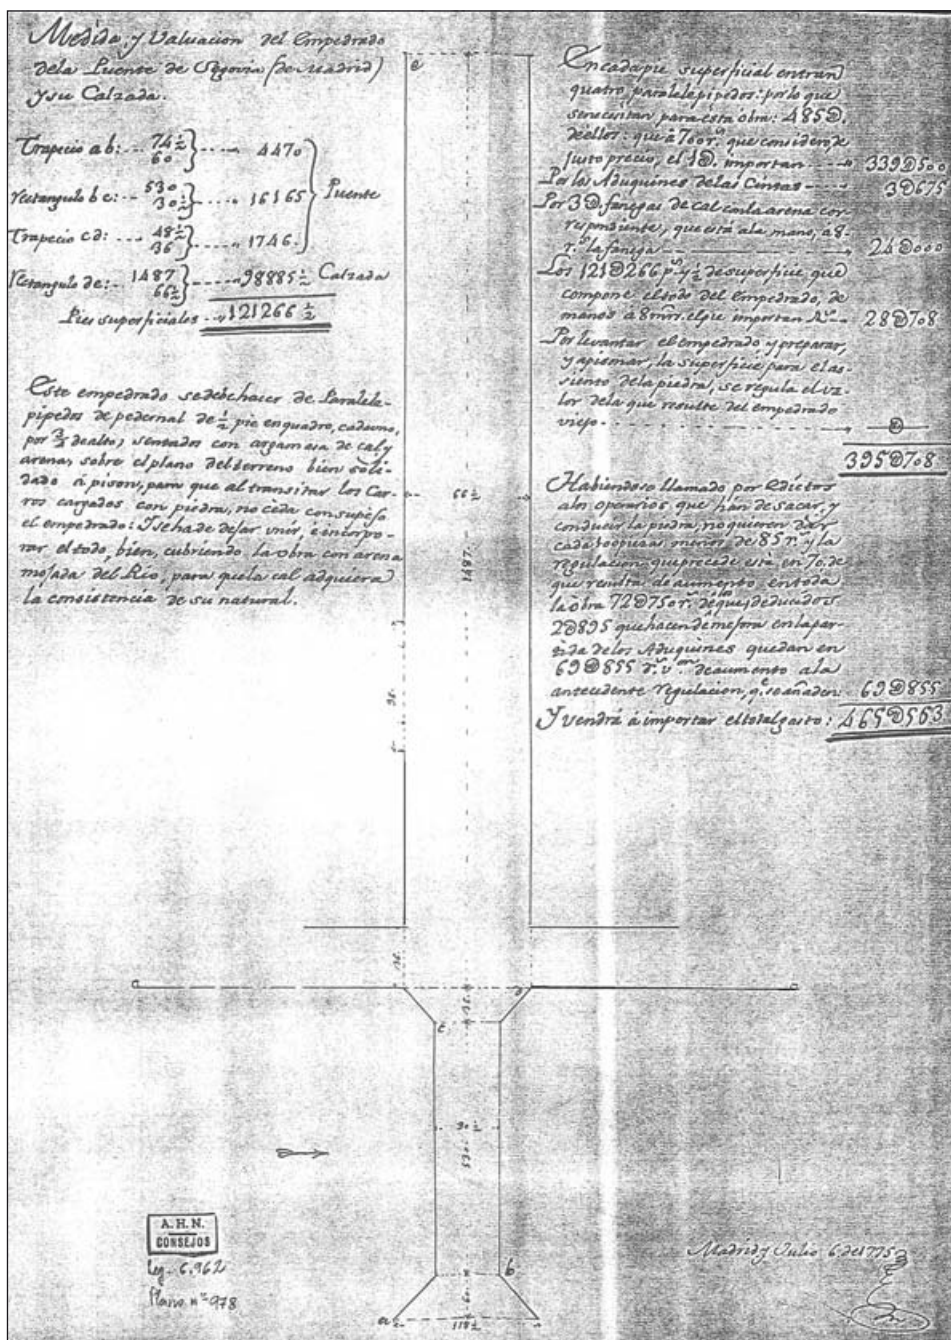 Medida, y Valuacion del Empedrado
dela Puente de Segovia (de Madrid)
y su Calzada.
Trapecio a b: 74 ½
60
4470
rectangulo b c: 530
30 ½
16165
Puente
Trapecio c d: 48 ½
36
1746
Rectangulo d e: 1487
66 ½
98885 ½ Calzada
Pies superficiales 121266 ½
Este empedrado se debe hacer de Paralele-
pipedos de pedernal de ½ pie en quadro, cada uno,
por ⅔ de alto, sentados con argamasa de cal y
arena, sobre el plano del terreno bien soli-
dado à pison, para que al transitar los Car-
ros cargados con piedra, no ceda con su peso
el empedrado: Y se ha de dejar unir, e incorpo-
rar el todo, bien, cubriendo la obra con arena
mojada del Rio, para que la cal adquiera
la consistencia de su natural.
En cada pie superficial entran
quatro paralelepipedos: por lo que
se necesitan para ésta obra: 485D.
de ellos: que à 700 r.s que considero de
justo precio, el 1D. importan 339D500
Por los Aduquines de las Cintas 3D675
Por 3D. fanegas de cal con la arena cor-
respondiente, que está ala mano, a 8.
r.s la fanega 24D000
Los 121D266 p.s y ½ de superficie que
compone el todo del Empedrado, de
manos à 8 mrs. el pie importan 28D708
Por levantar el empedrado y preparar,
y apisonar, la superficie para el as-
siento de la piedra, se regula el va-
lor dela que resulte del empedrado
viejo D
395D708
Habiendose llamado por Edictos
alos operarios que han de sacar, y
conducir la piedra, no quieren dar
cada 100 piezas menor de 85 r.s y la
regulacion que precede está en 70. de
que resulta de aumento en toda
la obra 72D750 r.s de que, deducidos
2D895 que hacen de mejora en la par-
tida de los Aduquines quedan en
69D855 r.s v.on de aumento a la
antecedente regulacion, q.e se añaden: 69D855
Y vendrá à importar el total gasto: 465D563
e
66 ½
1487.
36.
d
36.
c
30 ½
530.
b
60
a
118 ½
A.H.N.
CONSEJOS
Leg. 6.962
Plano nº 978
Madrid y Julio 6 de 1775